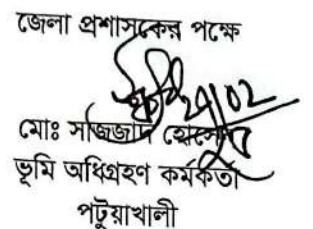 জেলা প্রশাসকের পক্ষে
২১/০২
মোঃ সাজ্জাদ হোসেন
ভূমি অধিগ্রহণ কর্মকর্তা
পটুয়াখালী